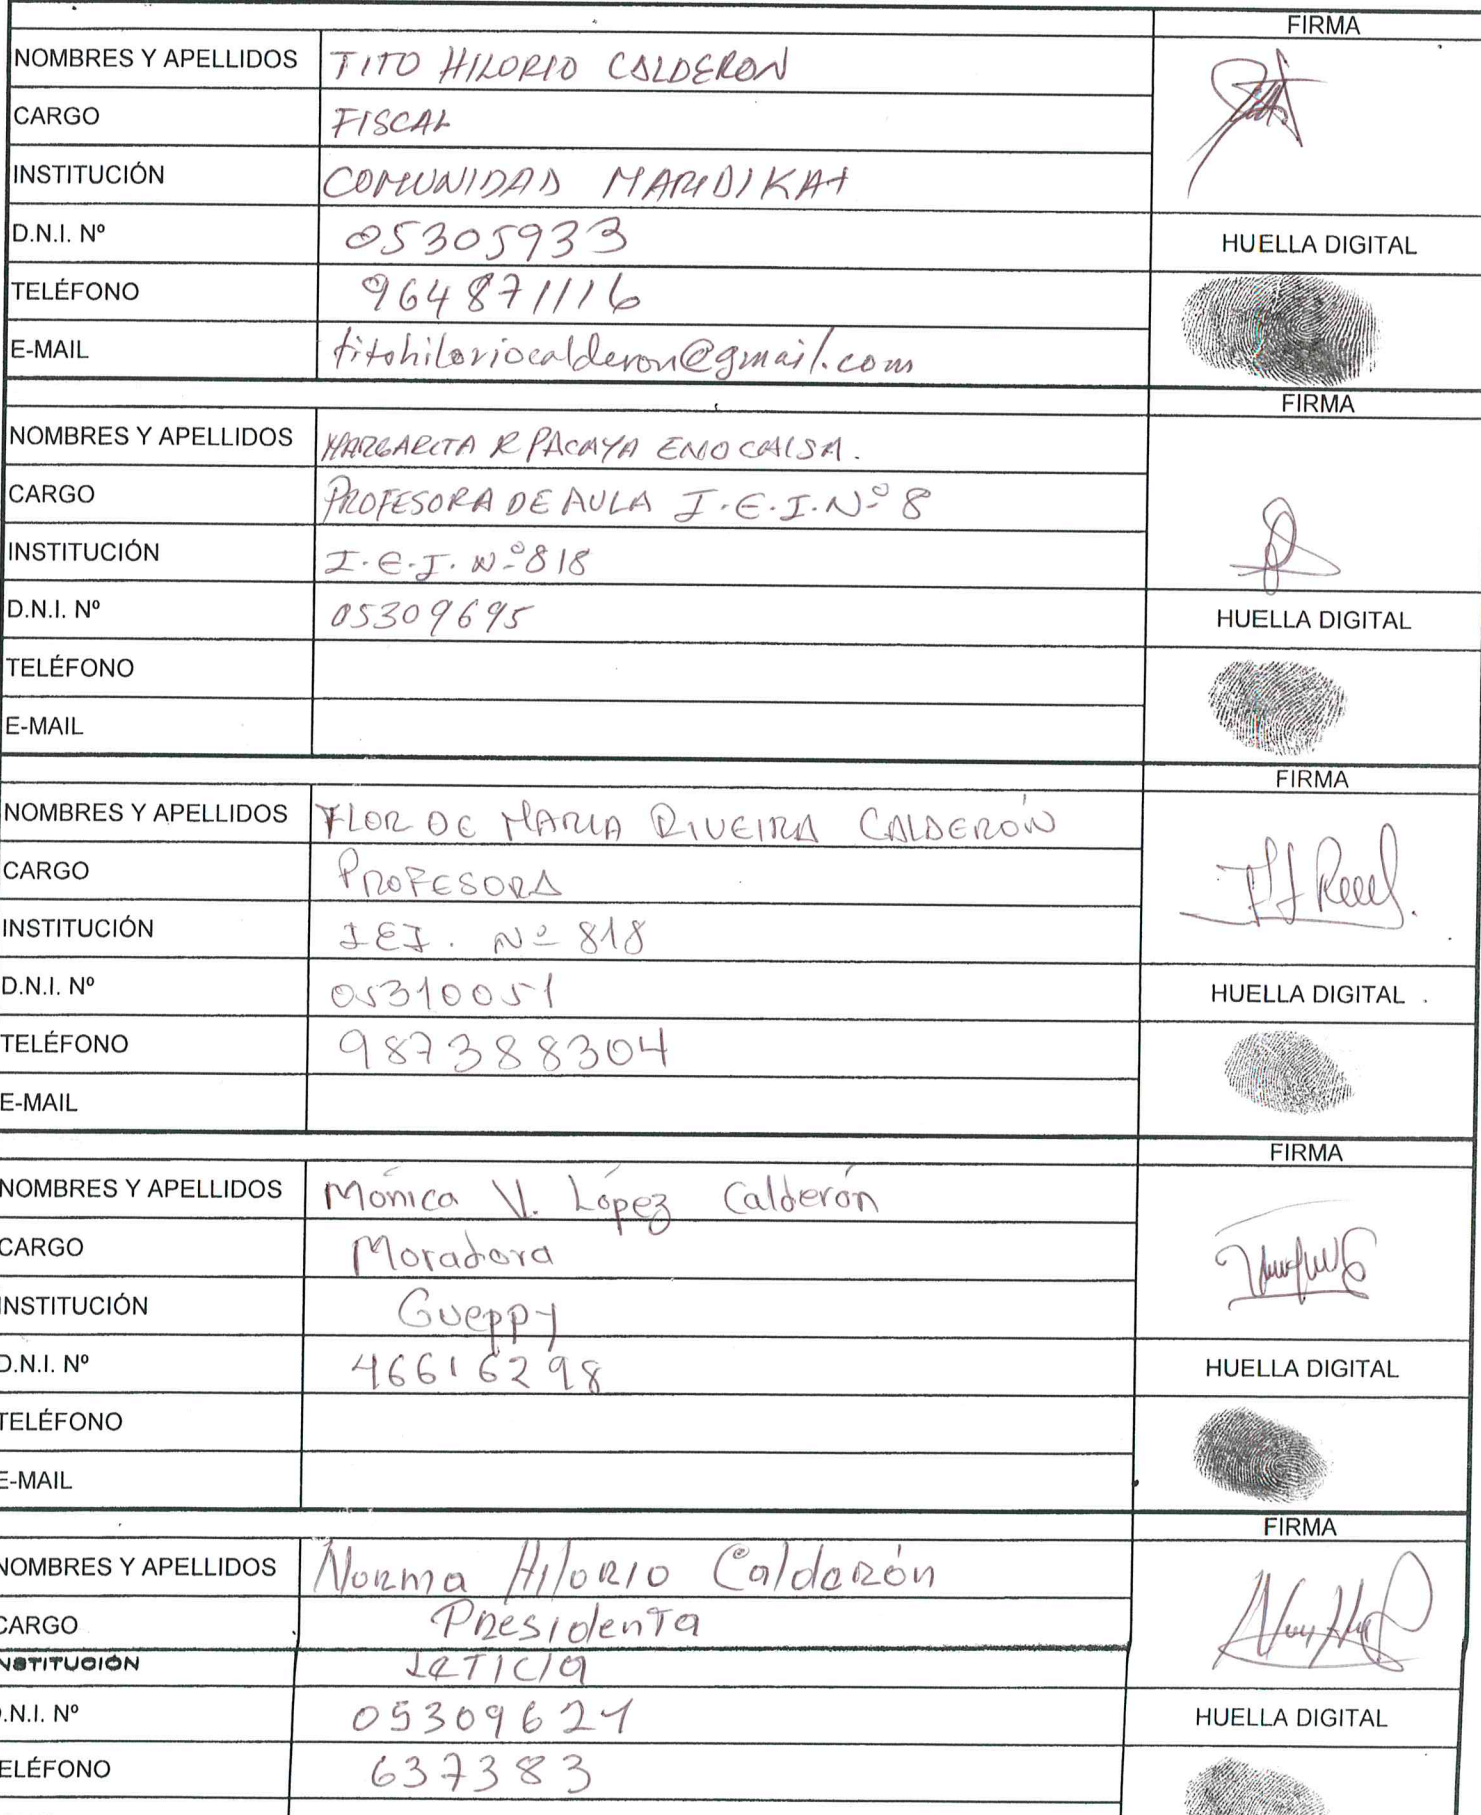 FIRMA
NOMBRES Y APELLIDOS TITO HILORIO CALDERON
CARGO FISCAL
INSTITUCIÓN COMUNIDAD
D.N.I. Nº 05305933 HUELLA DIGITAL
TELÉFONO 964871116
E-MAIL titohiloriocalderon@gmail.com
FIRMA
NOMBRES Y APELLIDOS MARGARITA R PACAYA
CARGO PROFESORA DE AULA I.E.I. Nº 8
INSTITUCIÓN I.E.I. Nº 818
D.N.I. Nº 05309695 HUELLA DIGITAL
TELÉFONO
E-MAIL
FIRMA
NOMBRES Y APELLIDOS FLOR DE MARIA RIVEIRA CALDERÓN
CARGO PROFESORA
INSTITUCIÓN IEI. Nº 818
D.N.I. Nº 05310051 HUELLA DIGITAL
TELÉFONO 987388304
E-MAIL
FIRMA
NOMBRES Y APELLIDOS Mónica V. López Calderón
CARGO Moradora
INSTITUCIÓN Gueppy
D.N.I. Nº 46616298 HUELLA DIGITAL
TELÉFONO
E-MAIL
FIRMA
NOMBRES Y APELLIDOS Norma Hilorio Calderón
CARGO Presidenta
INSTITUCIÓN leticia
D.N.I. Nº 05309621 HUELLA DIGITAL
TELÉFONO 637383